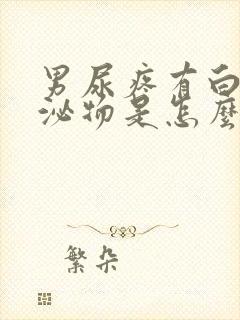 男尿疼有白
泌物是怎麼
繁朵